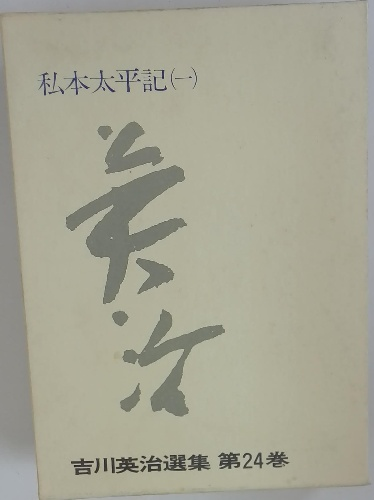 私本太平記(一)
英治
吉川英治選集 第24巻